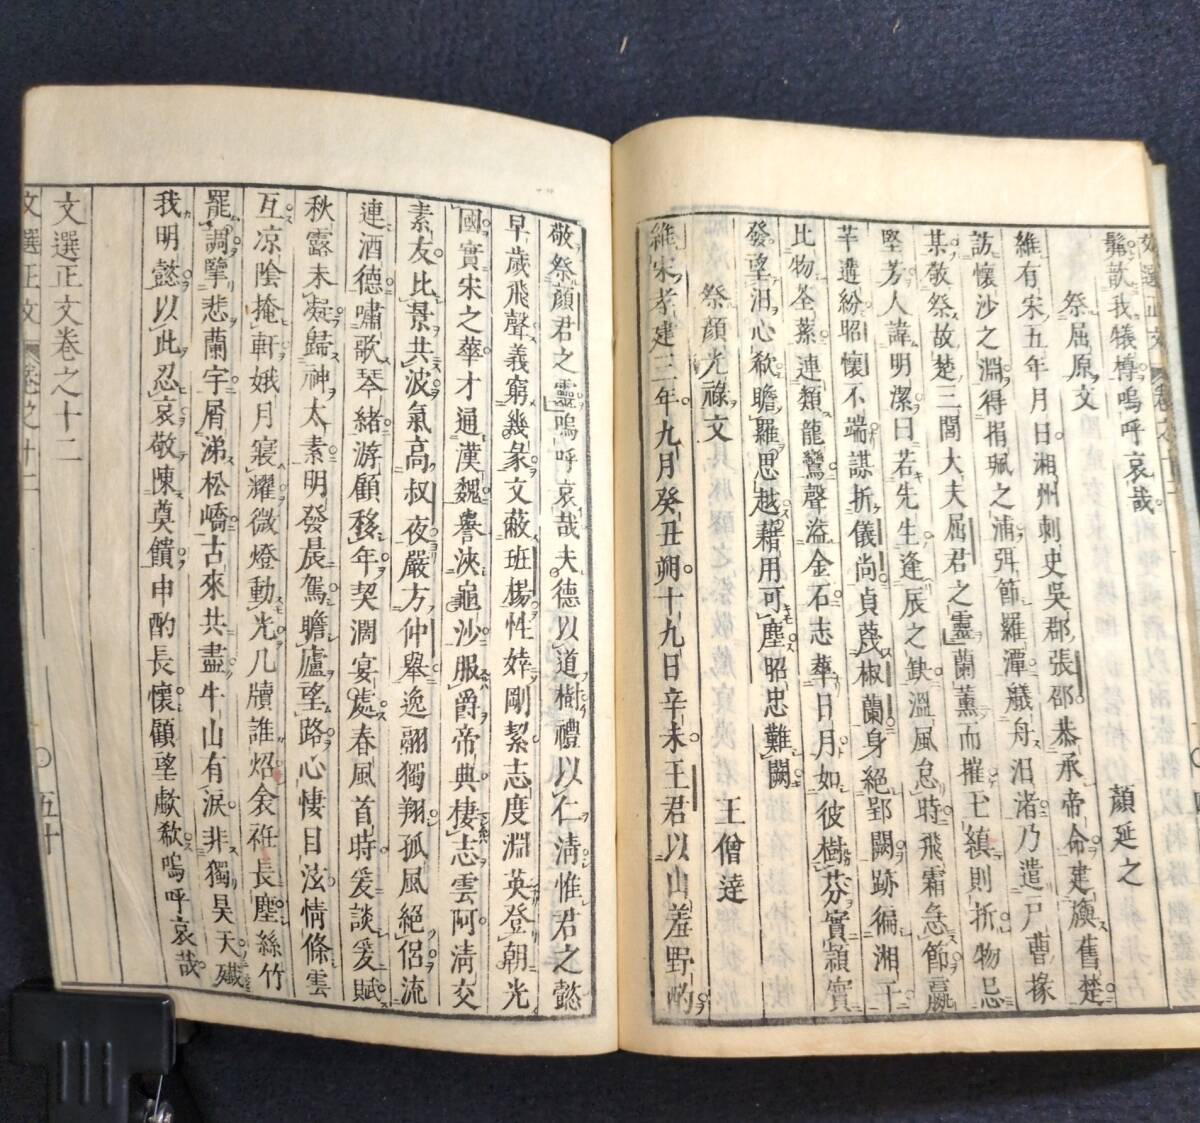 髴歆我犧樽嗚呼哀哉
祭屈原文　顏延之
維有宋五年月日湘州刺史吳郡張邵恭承帝命建旟舊楚
訪懷沙之淵得捐珮之浦弭節羅潭艤舟汨渚乃遣戸曹掾
某敬祭故楚三閭大夫屈君之靈蘭薰而摧玉縝則折物忌
堅芳人諱明潔曰若先生逢辰之缺溫風怠時飛霜急節嬴
芊遘紛昭懷不端謀折儀尚貞蔑椒蘭身絕郢闕跡徧湘干
比物荃蓀連類龍鸞聲溢金石志華日月如彼樹芬實穎實
發望汨心欷瞻羅思越藉用可塵昭忠難闕
祭顏光祿文　王僧達
維宋孝建三年九月癸丑朔十九日辛未王君以山羞野酌
敬祭顏君之靈嗚呼哀哉夫德以道樹禮以仁淸惟君之懿
早歲飛聲義窮幾彖文蔽班楊性婞剛絜志度淵英登朝光
國實宋之華才通漢魏譽浹龜沙服爵帝典棲志雲阿淸交
素友比景共波氣高叔夜嚴方仲舉逸翮獨翔孤風絕侶流
連酒德嘯歌琴緒游顧移年契濶宴處春風首時爰談爰賦
秋露未凝歸神太素明發晨駕瞻廬望路心悽目泫情條雲
互凉陰掩軒娥月寢耀微燈動光几牘誰炤衾衽長塵絲竹
罷調擥悲蘭宇屑涕松嶠古來共盡牛山有淚非獨昊天殲
我明懿以此忍哀敬陳奠饋申酌長懷顧望歔欷嗚呼哀哉
文選正文卷之十二
文選正文　卷之十二　五十